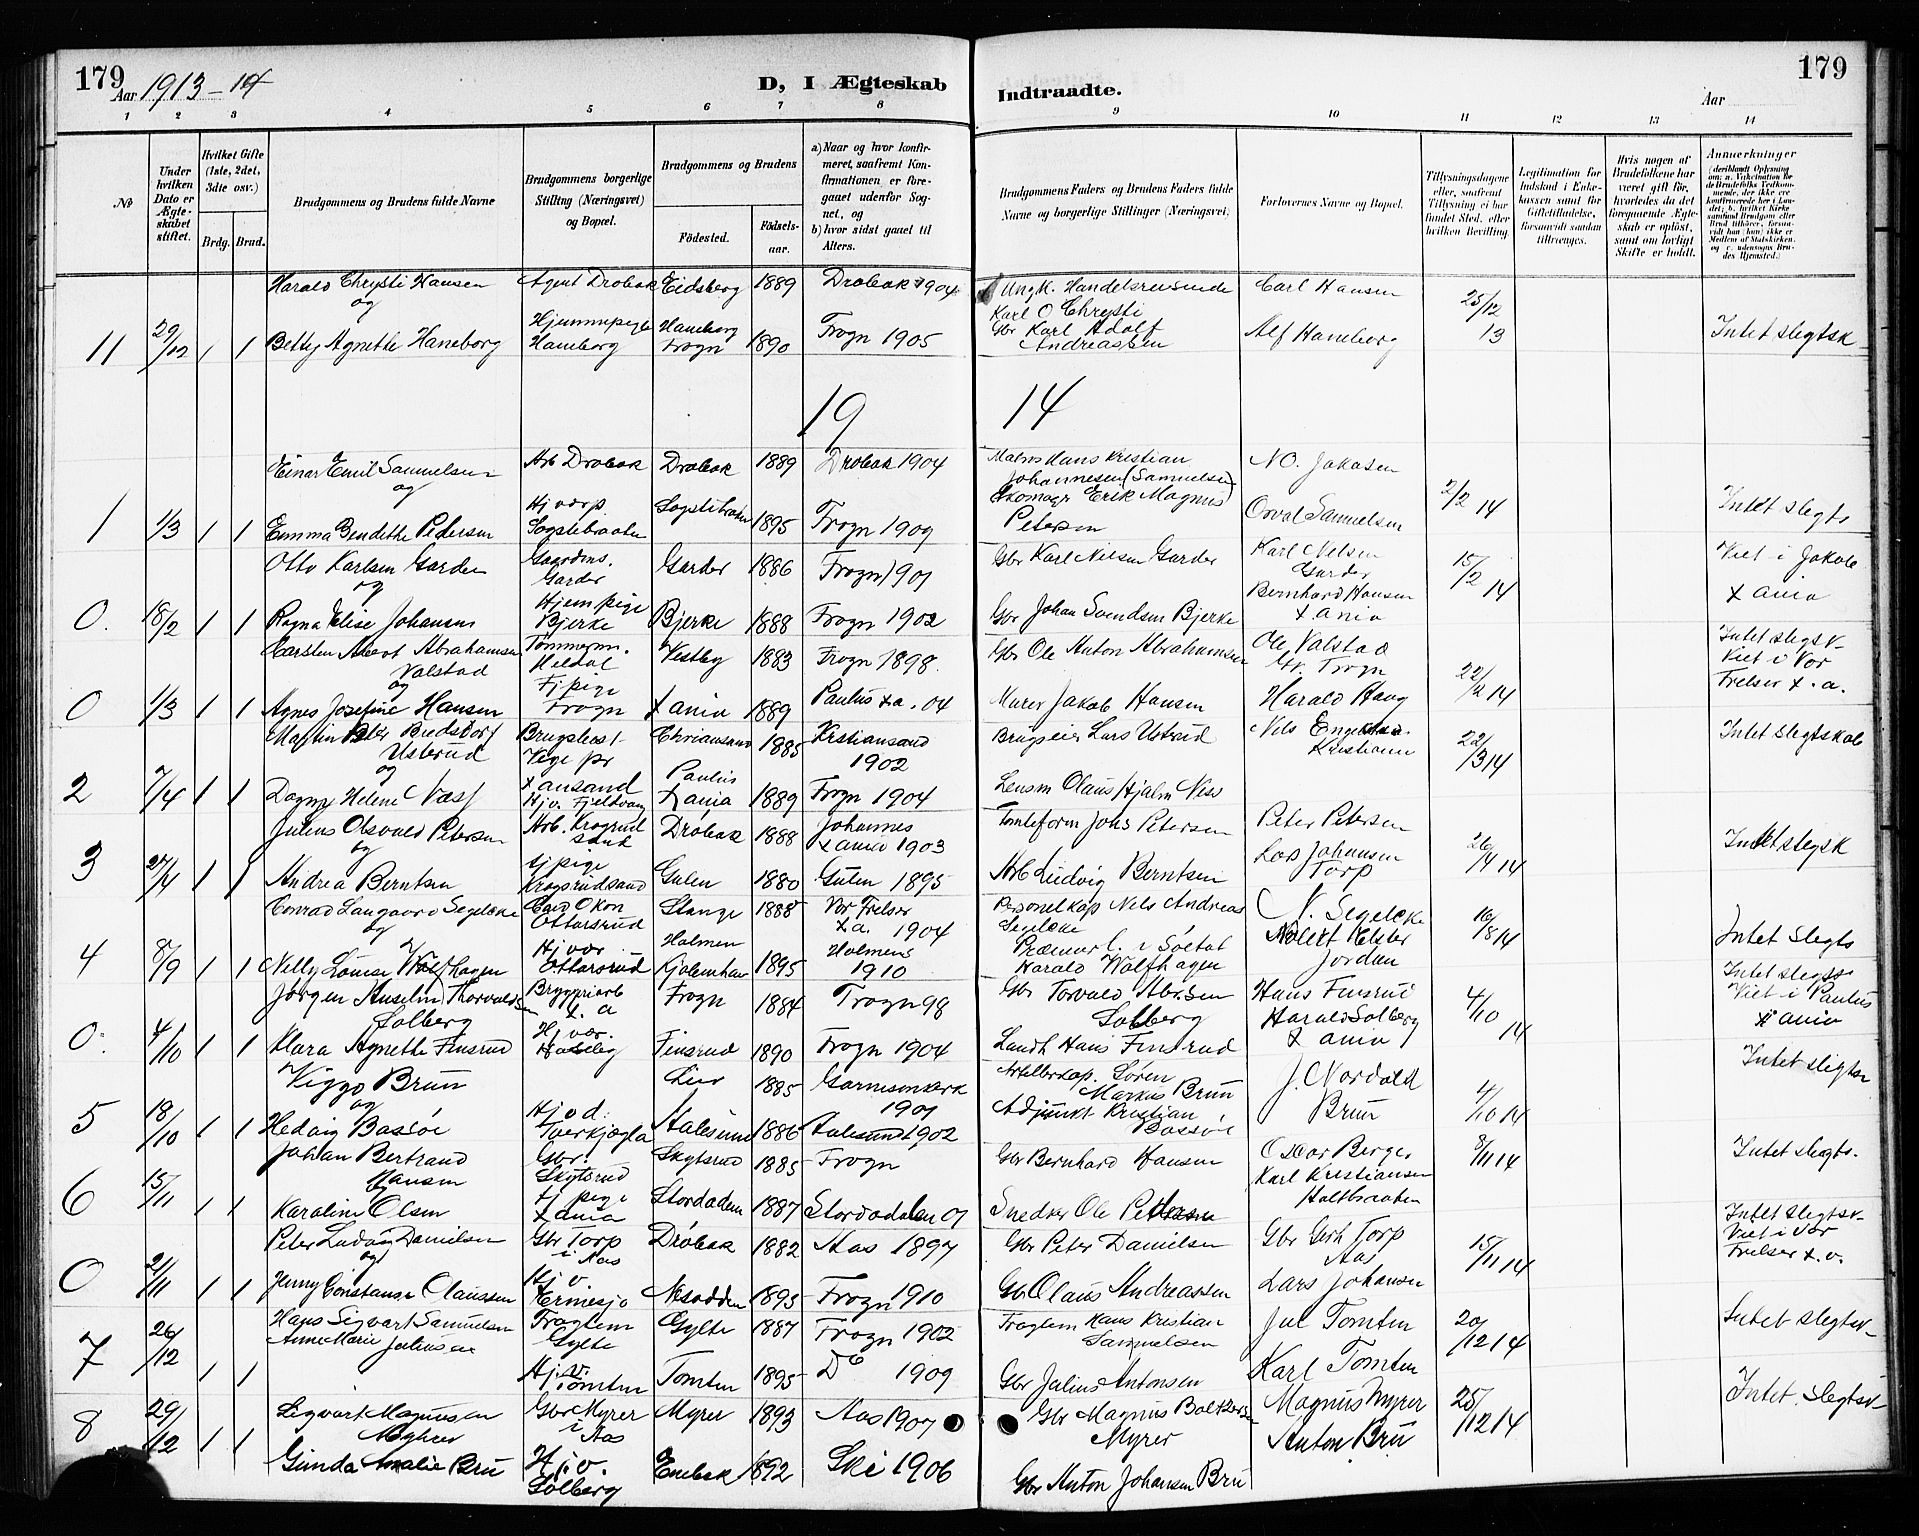 179
Aar 1913-14
D, I Ægteskab
Indtraadte.
Aar
179
1 2 3 4 5 6 7 8 9 10 11 12 13 14
No
Under hvilken Dato er Ægteskabet stiftet.
Hvilket Gifte (1ste, 2det, 3die osv.)
Brdg. Brud.
Brudgommens og Brudens fulde Navne
Brudgommens borgerlige Stilling (Næringsvei) og Bopæl.
Brudgommens og Brudens
Fødested. Fødselsaar.
a) Naar og hvor konfirmeret, saafremt Konfirmationen er foregaaet udenfor Sognet, og
b) hvor sidst gaaet til Alters.
Brudgommens Faders og Brudens Faders fulde Navne og borgerlige Stillinger (Næringsvei)
Forlovernes Navne og Bopæl.
Tillysningsdagene eller, saafremt Tillysning ei har fundet Sted, efter hvilken Bevilling.
Legitimation for Indskud i Enkekassen samt for Giftetilladelse, forsaavidt saadan tiltrænges.
Hvis nogen af Brudefolkene har været gift før, hvorledes da det foregaaende Ægteskab er opløst, samt om lovligt Skifte er holdt.
Anmærkninger
Harald Chrysti Hansen Agent Drøbak Eidsberg 1889 Drøbak 1904 Ungk. Handelsreisende Karl O Chrysti Carl Hansen 25/12
og
11 29/12 1 1 Betty Agnethe Haneborg Hjemmepige Haneborg Haneborg Frogn 1890 Frogn 1905 Gbr Karl Adolf Andreassen Alf Haneborg 13 Intet slegtsk
19 14
Einar Emil Samuelsen Arb Drøbak Drøbak 1889 Drøbak 1904 Matros Hans Kristian Johannesen (Samuelsen) N.O. Jakosen
og
1 1/3 1 1 Emma Bendethe Pedersen Hj vorp. Sogstebraaten 1895 Frogn 1909 Skomagr Erik Magnus Petersen Orval Samuelsen 2/2 14 Intet slegts
Otto Karlsen Garder Gaardbrs. Garder Garder 1886 Frogn 1901 Gbr Karl Nilsen Garder Karl Nelsen Garder 15/2 14 Viet i Jakob
og
0. 18/2 1 1 Ragna Elise Johansen Hjem pige Bjerke Bjerke 1888 Frogn 1902 Gbr Johan Svendsen Bjerke Bernhard Hansen X ania X ania
Karsten Abrahamsen Valstad Tømmerm. Heldal Vestby 1883 Frogn 1898. Gbr Ole Anton Abrahamsen Ole Valstad Frogn 22/2 14 Intet slegtsk Viet i Vor Frelser X.a.
og
0 1/3 1 1 Agnes Josefine Hansen Tj pige Frogn X ania 1889 Paulus Xa. 04 Murer Jakob Hansen Harald Haug
Martin Peter Bredsdorf Usterud Chrisansand 1885 Kristiansand 1902 Brugseier Lars Usterud Nils 22/3 14 Intet slegtskab
og
2 7/4 1 1 Dagny Helene Næss X ansand Hjv. Fjeldvang Paulus X ania 1889 Frogn 1904 Lensm Olaus Hjalm Næss
Julius Osvald Petersen Arb. Drøbak 1888 Johannes X ania 1903 Tomteform Johs Petersen Peter Petersen
og
3 27/4 1 1 Andrea Berntsen Tj pige Gulen 1880 Gulen 1895 Arb Ludvig Berntsen Johansen Torp 26/4 14 Intet slegsk
Conrad Langaard Segelcke Ottarsrud Stange 1888 Vor Frelser X.a. 1904 Nils Andreas Segelcke N. Segelcke
og
4 8/9 1 1 Nelly Louise Wolfhagen Hj vær. Ottarsrud Holmen Kjøbenhavn 1895 Holmens 1910 Premierl. i Søetat Harald Wolfhagen Jordan 16/8 14 Intet slegts
Jørgen Anselm Thorvaldsen Solberg Bryggeriarb X.a Frogn 1884 Frogn 98 Gbr Torvald Solberg Hans Finsrud 4/10 Intet slegts Viet i Paulus X ania
0. 4/10 1 1 Klara Agnethe Finsrud Hj vær. Finsrud 1890 Frogn 1904 Landh Hans Finsrud Harald Solberg X ania 14
Viggo Brun Lier 1885 Garnisonskirk 1901 Artillerikap. Søren Markus Brun J. Nordvld Intet slegtsk
og
5 18/10 1 1 Hedvig Bassøe Hj o d. Aalesund 1886 Aalesund 1902 Adjunkt Kristian Bassøe Brun 4/10 14
Johan Bertrand Hansen Gbr. Skytsrud Skytsrud 1885 Frogn Gbr Bernhard Hansen Oscar Berger 8/11 14 Intet slegts.
6 15/11 1 1 Karoline Olsen Tj pige X ania Stordalen 1887 Stordalen 01 Snedker Ole Pettersen Karl Kristiansen Holtbraaten
Peter Ludvig Danielsen Gbr Torp i Aas Drøbak 1882 Aas 1897 Gbr Peter Danielsen Gbr Gerh Torp Aas 15/11 14 Intet slegtsk Viet i Vor Frelser X.a.
og
0 21/11 1 1 Jenny Constanse Olaussen Hj v. Nesodden 1895 Frogn 1910 Gbr Olaus Andreassen Lars Johansen
Hans Sigvart Samuelsen Gylte Gylte 1887 Frogn 1902 Hans Kristian Samuelsen Jul Tomten 20/12 14 Intet slegtsk
7 26/12 1 1 Anne Marie Juliussen Hj v. Tomten Tomten 1895 Do 1909 Gbr Julius Antonsen Karl Tomten
8 29/12 1 1 Sigvart Magnussen Myhrer Gbr Myrer i Aas Myrer 1893 Aas 1907 Gbr Magnus Baltzersen Myrer Magnus Myrer 25/12 14 Intet. slegtsk
Gunda Amalie Bru Hj. v. Solberg Enebak 1892 Ski 1906 Gbr Anton Johansen Bru Anton Bru